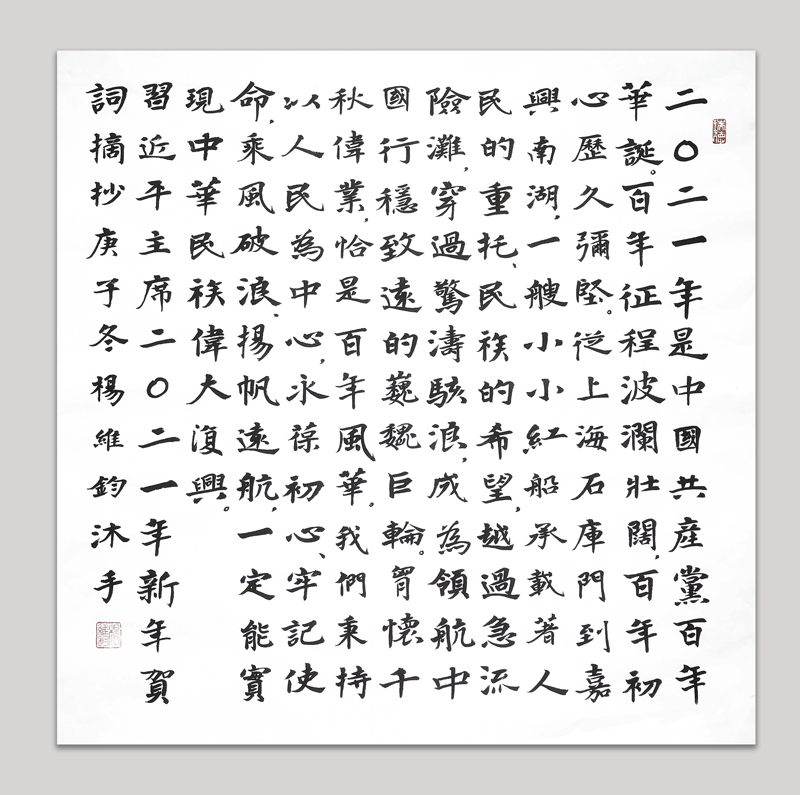 二〇二一年是中國共産黨百年
華誕。百年征程波瀾壯闊,百年初
心歷久彌堅。從上海石庫門到嘉
興南湖,一艘小小紅船承載著人
民的重托、民族的希望,越過急流
險灘,穿過驚濤駭浪,成為領航中
國行穩致遠的巍巍巨輪。胷懷千
秋偉業,恰是百年風華。我們秉持
以人民為中心,永葆初心、牢記使
命,乘風破浪、揚帆遠航,一定能實
現中華民族偉大復興。
習近平主席二〇二一年新年賀
詞摘抄庚子冬楊維鈞沐手